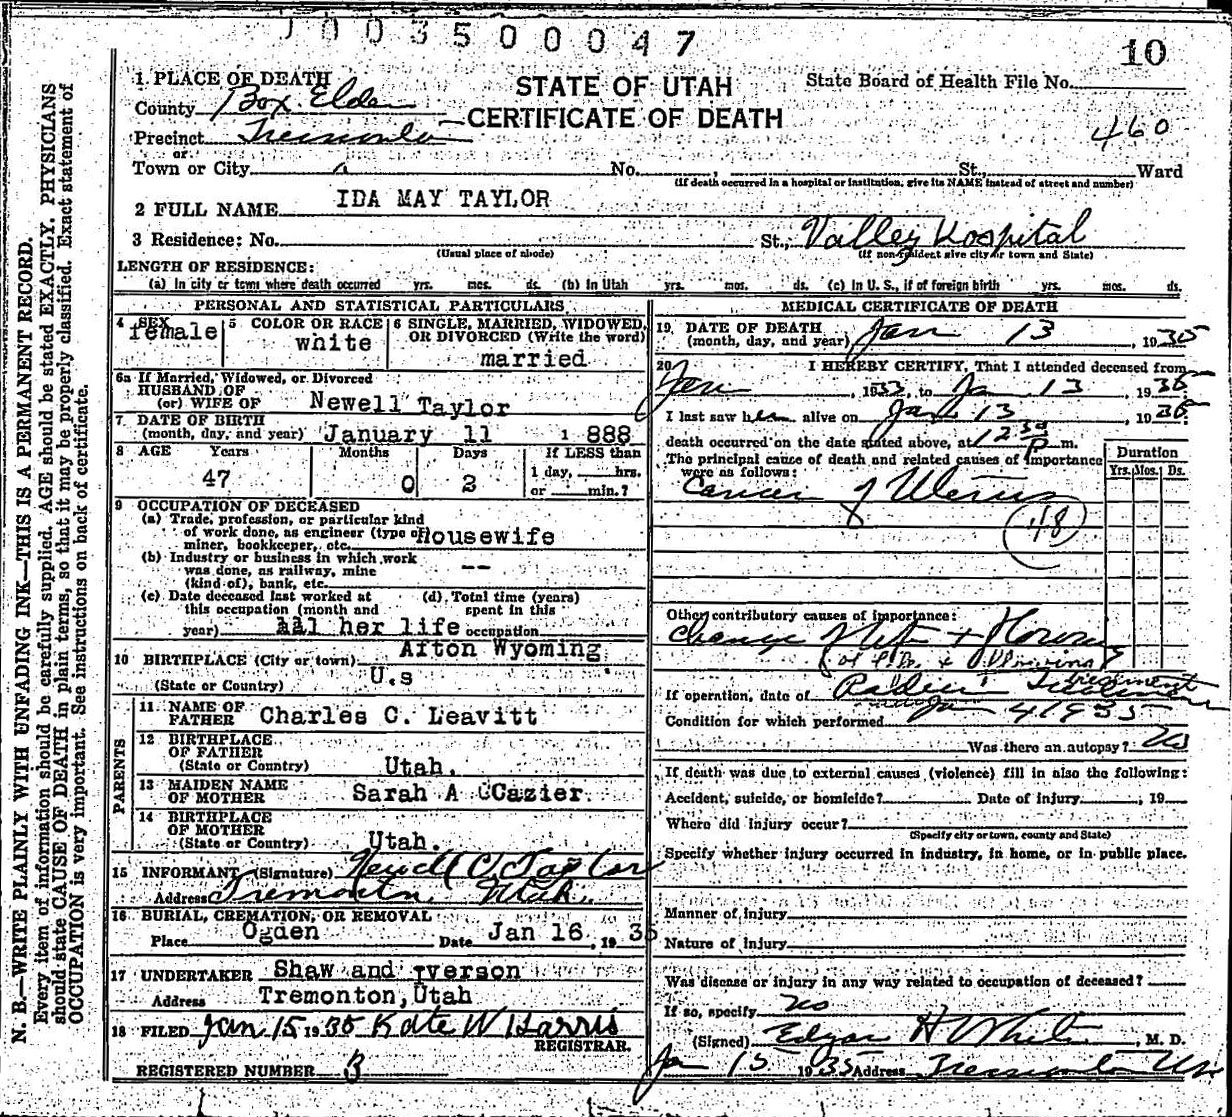 J003500047
10
STATE OF UTAH
CERTIFICATE OF DEATH
State Board of Health File No.
460
1. PLACE OF DEATH
County Box Elder
Precinct Tremonton
or
Town or City No. , St., Ward
(If death occurred in a hospital or institution, give its NAME instead of street and number)
2 FULL NAME IDA MAY TAYLOR
3 Residence: No. St., Valley Hospital
(Usual place of abode) (If non-resident give city or town and State)
LENGTH OF RESIDENCE:
(a) In city or town where death occurred yrs. mos. ds. (b) In Utah yrs. mos. ds. (c) In U. S., if of foreign birth yrs. mos. ds.
PERSONAL AND STATISTICAL PARTICULARS
4 SEX female
5 COLOR OR RACE white
6 SINGLE, MARRIED, WIDOWED,
OR DIVORCED (Write the word)
married
6a If Married, Widowed, or Divorced
HUSBAND OF
(or) WIFE OF Newell Taylor
7 DATE OF BIRTH
(month, day, and year) January 11 1 888
8 AGE Years Months Days If LESS than
1 day, hrs.
47 0 2 or min.?
9 OCCUPATION OF DECEASED
(a) Trade, profession, or particular kind
of work done, as engineer (type of
miner, bookkeeper, etc. Housewife
(b) Industry or business in which work
was done, as railway, mine
(kind of), bank, etc. --
(c) Date deceased last worked at
this occupation (month and
year) all her life
(d) Total time (years)
spent in this
occupation
10 BIRTHPLACE (City or town) Afton Wyoming
(State or Country) U.s
PARENTS
11 NAME OF
FATHER Charles C. Leavitt
12 BIRTHPLACE
OF FATHER
(State or Country) Utah.
13 MAIDEN NAME
OF MOTHER Sarah A CCazier
14 BIRTHPLACE
OF MOTHER
(State or Country) Utah.
15 INFORMANT (Signature) Newell C. Taylor
Address Tremonton, Utah.
16 BURIAL, CREMATION, OR REMOVAL
Place Ogden Date Jan 16, 19 35
17 UNDERTAKER Shaw and Iverson
Address Tremonton, Utah
18 FILED Jan. 15 1935 Kate W Harris
REGISTRAR.
REGISTERED NUMBER 3
MEDICAL CERTIFICATE OF DEATH
19. DATE OF DEATH
(month, day, and year) Jan 13, 1935
20 I HEREBY CERTIFY, That I attended deceased from
Jan, 1933, to Jan 13 1935
I last saw her alive on Jan 13 1935
death occurred on the date stated above, at 12 30 P m.
The principal cause of death and related causes of importance
were as follows:
Duration
Yrs. Mos. Ds.
Cancer of Uterus
48
Other contributory causes of importance:
If operation, date of Radium Treatment
Jan 4 1935
Condition for which performed
Was there an autopsy? No
If death was due to external causes (violence) fill in also the following:
Accident, suicide, or homicide? Date of injury , 19
Where did injury occur?
(Specify city or town, county and State)
Specify whether injury occurred in industry, in home, or in public place.
Manner of injury
Nature of injury
Was disease or injury in any way related to occupation of deceased?
If so, specify no
(Signed) Edgar H White, M. D.
Jan 15 1935 Address Tremonton Ut
N. B.—WRITE PLAINLY WITH UNFADING INK—THIS IS A PERMANENT RECORD.
Every item of information should be carefully supplied. AGE should be stated EXACTLY. PHYSICIANS
should state CAUSE OF DEATH in plain terms, so that it may be properly classified. Exact statement of
OCCUPATION is very important. See instructions on back of certificate.